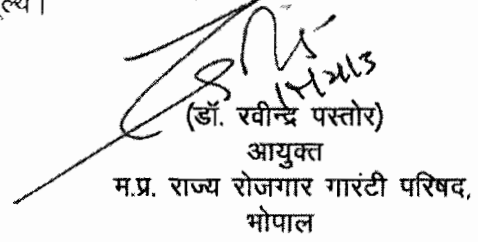 (डॉ. रवीन्द्र पस्तोर)
आयुक्त
म.प्र. राज्य रोजगार गारंटी परिषद,
भोपाल